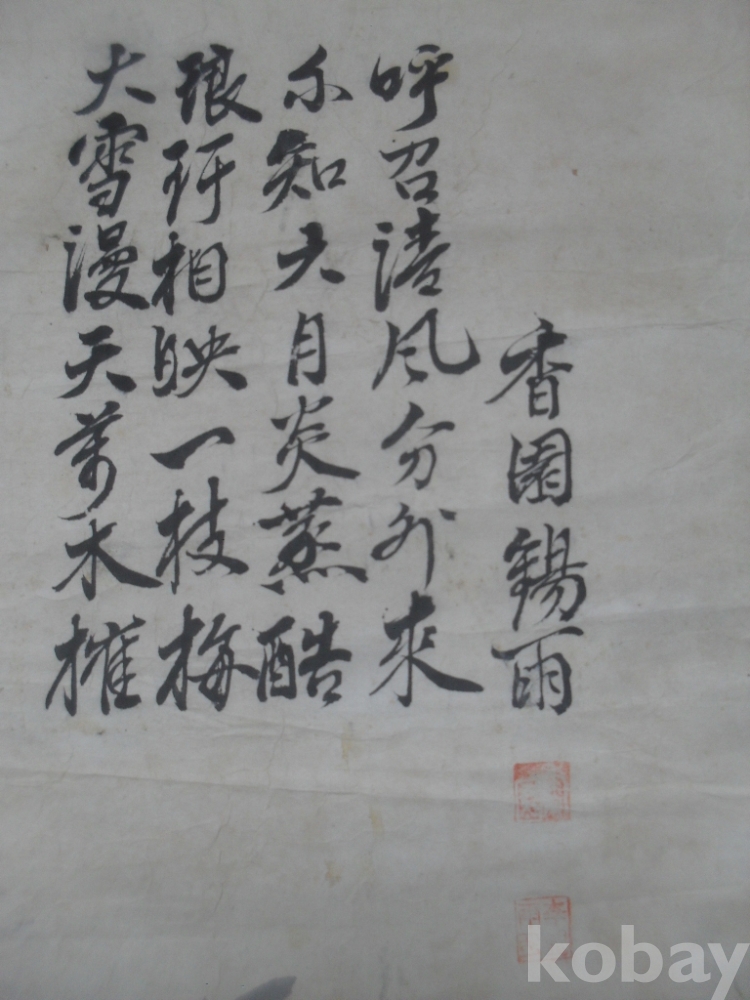 大雪漫天萬木摧
琅玕相映一枝梅
不知六月炎蒸酷
呼召清風分外來
香園錫雨
kobay